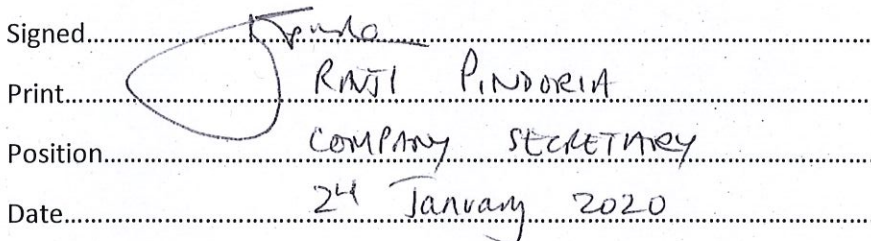 Signed
Print RAVJI PINDORIA
Position COMPANY SECRETARY
Date 24 January 2020